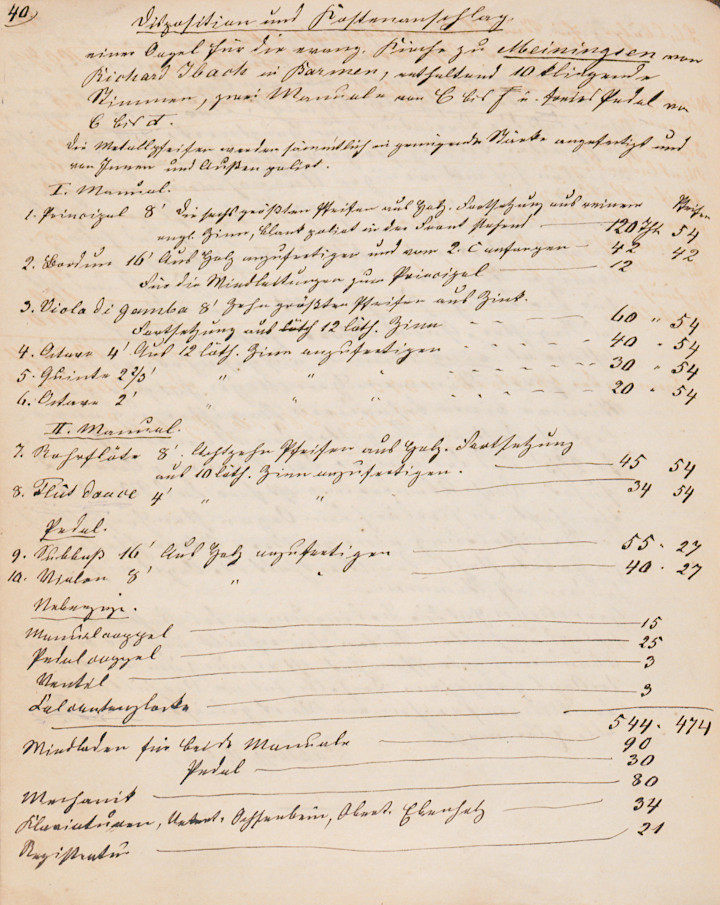 40.
Disposition und Kostenanschlag.
einer Orgel für die evang. Kirche zu Meiningsen von
Richard Ibach in Barmen, enthaltend 10 klingende
Stimmen, zwei Manuale von C bis f̅ u. freies Pedal von
C bis d.
Die Metallpfeifen werden sämmtlich in genügender Stärke angefertigt und
von Innen und Außen polirt.
I. Manual. Pfeifen
1. Principal 8' Die sechs größten Pfeifen aus Holz. Fortsetzung aus reinem
engl. Zinn, blank polirt in der Front stehend 120 Thl. 54
2. Bordun 16' Aus Holz anzufertigen und vom 2. C anfangen 42 42
Für die Windleitungen zum Principal 12
3. Viola di gamba 8' Zehn größten Pfeifen aus Zink.
Fortsetzung aus 12 löth. Zinn 60 " 54
4. Octave 4' Aus 12 löth. Zinn anzufertigen 40 " 54
5. Quinte 2 2/3' " " " 30 " 54
6. Octave 2' " " " 20 " 54
II. Manual.
7. Rohrflöte 8'. Achtzehn Pfeifen aus Holz. Fortsetzung
aus 10 löth. Zinn anzufertigen. 45 54
8. Flût douce 4' " " 34 54
Pedal.
9. Subbaß 16' Aus Holz anzufertigen 55 " 27
10. Violon 8' " " 40 " 27
Nebenzüge.
Manualcoppel 15
Pedalcoppel 25
Ventil 3
Calcantenglocke 3
544 " 474
Windladen für beide Manuale 90
Pedal 30
Mechanik 80
Klaviaturen, Untert. Ochsenbein, Obert. Ebenholz 34
Registratur 21